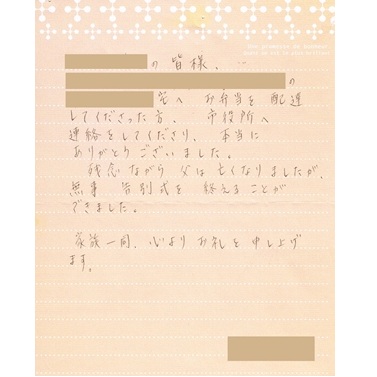 の皆様、
の
宅へ お弁当を 配達
してくださった方、 市役所へ
連絡をしてくださり、 本当に
ありがとうございました。
残念ながら 父は 亡くなりましたが、
無事 告別式を 終えることが
できました。
家族一同、心より お礼を 申し上げ
ます。